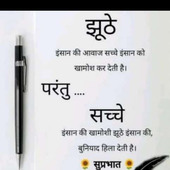 झूठे
इंसान की आवाज सच्चे इंसान को
खामोश कर देती है।
परंतु ....
सच्चे
इंसान की खामोशी झूठे इंसान की,
बुनियाद हिला देती है।
🌻 सुप्रभात 🌻